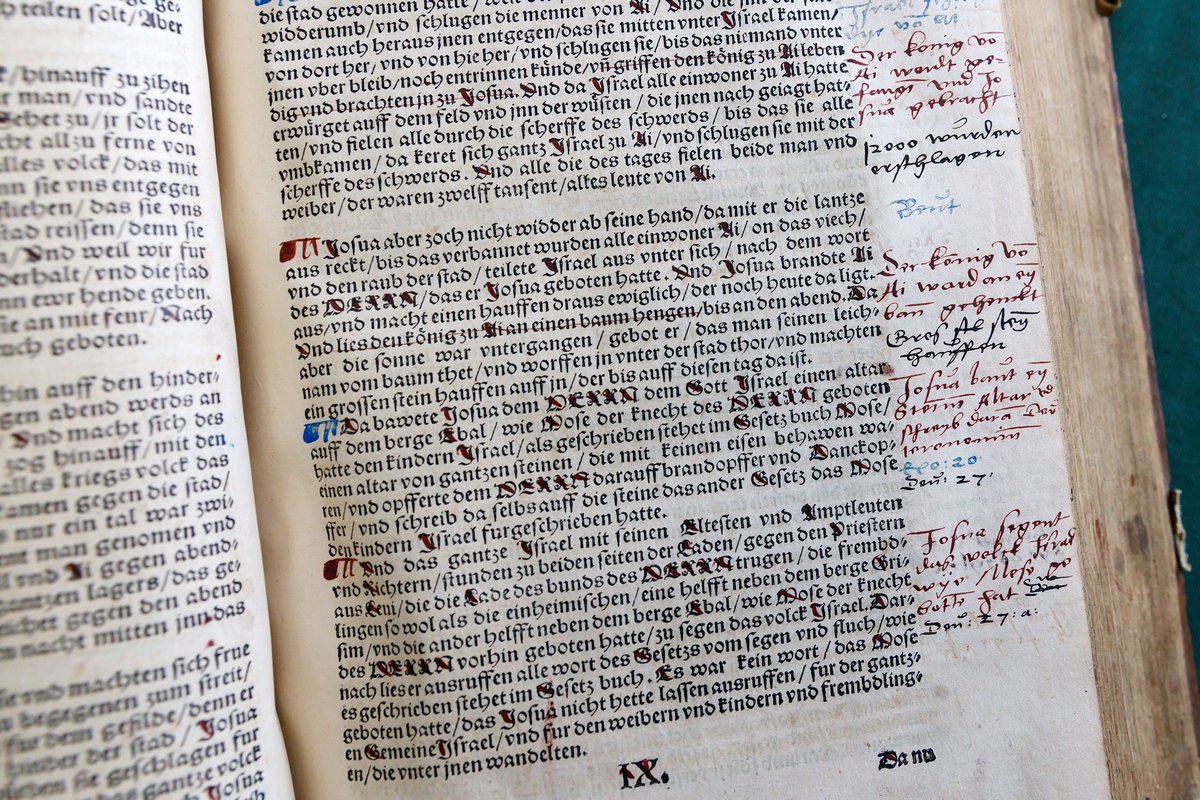 ch teilen solt/Aber
k/hinauff zu zihen
t man/vnd sandte
Sehet zu/jr solt der
cht allzu ferne von
alles volck/das mit
nn sie vns entgegen
fliehen/das sie vns
stad reissen/denn sie
n/Vnd weil wir fur
derhalt/vnd die stad
nn ewr hende geben.
sie an mit feur/Nach
uch geboten.
hin auff den hinder-
gen abend werds an
Vnd macht sich des
zog hinauff/mit den
alles kriegs volck das
kamen gegen die stad/
s nur ein tal war zwi-
man genomen vnd
vnd Ai gegen abend-
lagers/das ge-
gegen den abend
nacht mitten jnn das
vnd machten sich frue
begegenen zum streit/
fur dem gefilde/denn er
hinder der stad/Josua
sie geschlagen fur
das gantze volck
Josua
die stad gewonnen hatte/
widderumb/vnd schlugen die menner von Ai/Vnd die jnn der stad
kamen auch heraus jnen entgegen/das sie mitten vnter Israel kamen/
von dort her/vnd von hie her/vnd schlugen sie/bis das niemand vnter
jnen vber bleib/noch entrinnen künde/vñ griffen den könig zu Ai leben
dig vnd brachten jn zu Josua. Vnd da Israel alle einwoner zu Ai hatte
erwürget auff dem feld vnd jnn der wüsten/die jnen nach geiagt hat-
ten/vnd fielen alle durch die scherffe des schwerds/bis das sie alle
vmbkamen/da keret sich gantz Israel zu Ai/vnd schlugen sie mit der
scherffe des schwerds. Vnd alle die des tages fielen beide man vnd
weiber/der waren zwelff tausent/alles leute von Ai.
Josua aber zoch nicht widder ab seine hand/da mit er die lantze
aus reckt/bis das verbannet wurden alle einwoner Ai/on das viech/
vnd den raub der stad/teilete Israel aus vnter sich/nach dem wort
des HERRN/das er Josua geboten hatte. Vnd Josua brandte Ai
aus/vnd macht einen hauffen draus ewiglich/der noch heute da ligt.
Vnd lies den könig zu Ai an einen baum hengen/bis an den abend. Da
aber die sonne war vntergangen/gebot er/das man seinen leich-
nam vom baum thet/vnd worffen jn vnter der stad thor/vnd machten
ein grossen stein hauffen auff jn/der bis auff diesen tag da ist.
Da bawete Josua dem HERRN dem Gott Israel einen altar
auff dem berge Ebal/wie Mose der knecht des HERRN geboten
hatte den kindern Israel/als geschrieben stehet im Gesetz buch Mose/
einen altar von gantzen steinen/die mit keinem eisen behawen wa-
ren/vnd opfferte dem HERRN darauff brandopffer vnd Danckop-
ffer/vnd schreib da selbs auff die steine das ander Gesetz das Mose
den kindern Israel fur geschrieben hatte.
Vnd das gantze Israel mit seinen Eltesten vnd Amptleuten
vnd Richtern/stunden zu beiden seiten der Laden/gegen den Priestern
aus Leui/die die Lade des bunds des HERRN trugen/die frembd-
lingen so wol als die einheimischen/eine helfft neben dem berge Gri-
sim/vnd die ander helfft neben dem berge Ebal/wie Mose der knecht
des HERRN vorhin geboten hatte/zu segen das volck Israel. Dar-
nach lies er ausruffen alle wort des Gesetzs vom segen vnd fluch/wie
es geschrieben stehet im Gesetz buch. Es war kein wort/das Mose
geboten hatte/das Josua nicht hette lassen ausruffen/fur der gantz-
en Gemeine Israel/vnd fur den weibern vnd kindern vnd frembdling-
en/die vnter jnen wandelten.
IX.
Da nu
Der könig vō
Ai werdt ge-
fangē vnd Jo
sua gebracht
12000 wurden
erschlagen
Beut
Der könig vō
Ai ward an ey
bam gehenckt
Gros
hauffen
Josua baut ey
Altar
Exo: 20
Deu: 27
Josua segent
das volck Israel
wye Mose ge
botē hat
Deu: 27: a: